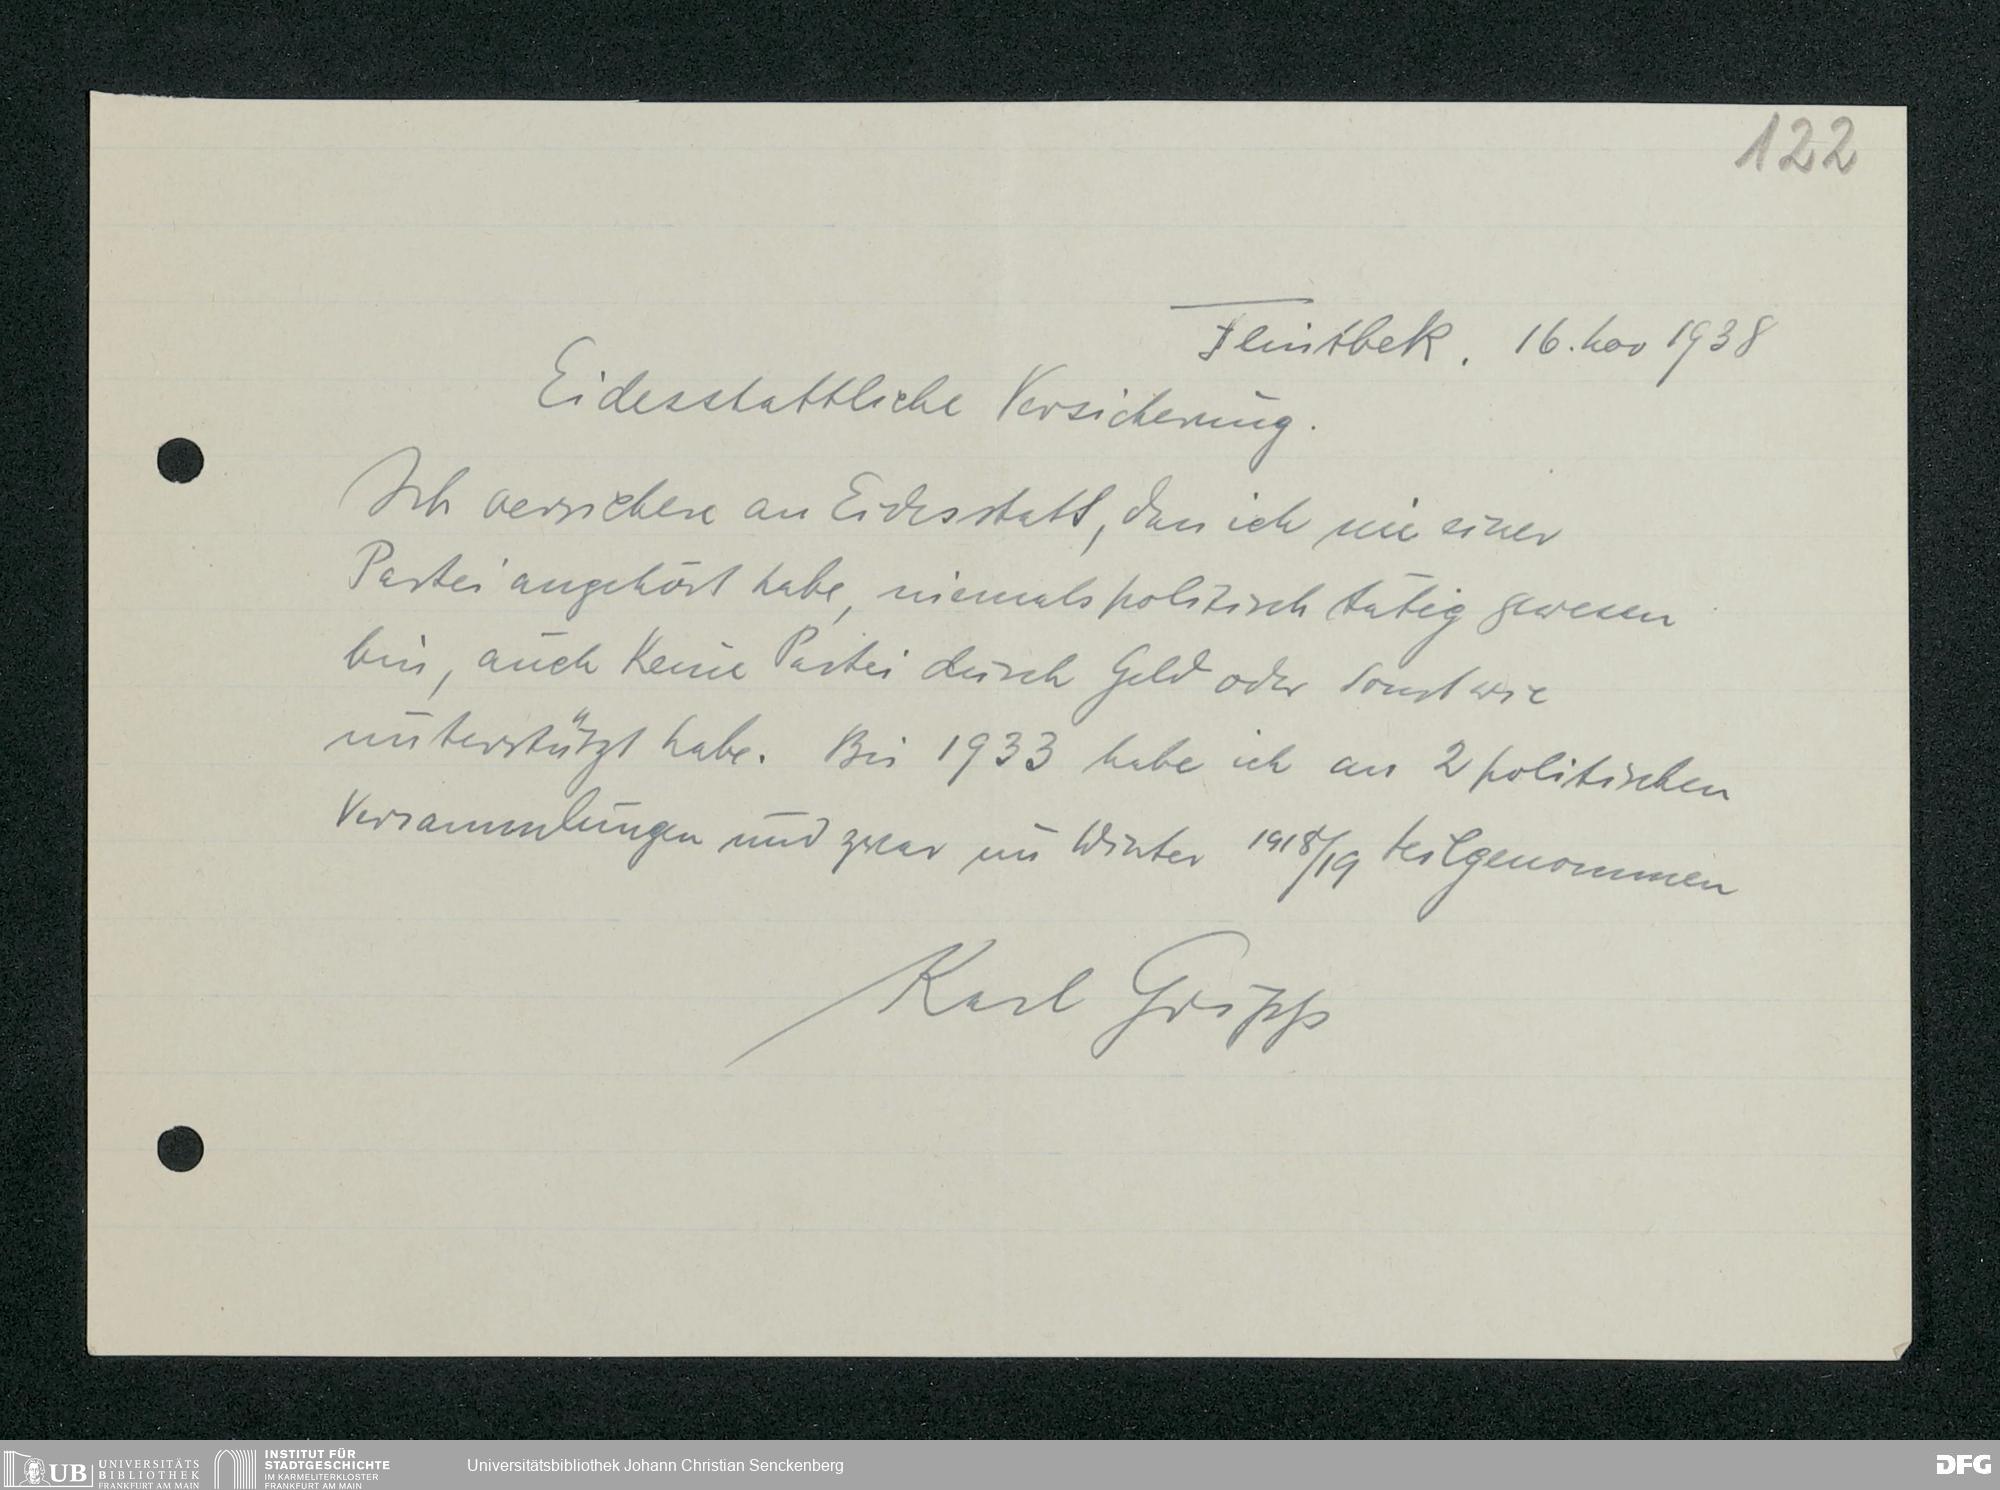 122
Flintbek. 16. Nov 1938
Eidesstattliche Versicherung.
Ich versichere an Eidesstatt, dass ich nie einer
Partei angehört habe, niemals politisch tätig gewesen
bin, auch keine Partei durch Geld oder sonstwie
unterstützt habe. Bis 1933 habe ich an 2 politischen
Versammlungen und zwar im Winter 1918/19 teilgenommen
Karl Gripp
UB UNIVERSITÄTS
BIBLIOTHEK
FRANKFURT AM MAIN
INSTITUT FÜR
STADTGESCHICHTE
IM KARMELITERKLOSTER
FRANKFURT AM MAIN
Universitätsbibliothek Johann Christian Senckenberg
DFG